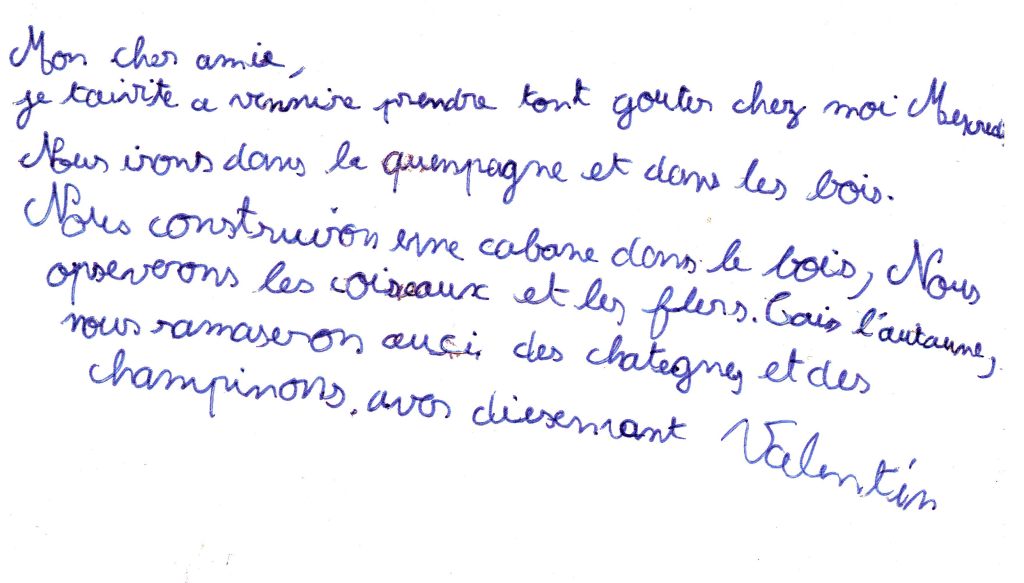 Mon cher amie,
je tainvite a vennire prendre tont gouter chez moi Mercredi
Nous irons dans la quenpagne et dans les bois.
Nous construiron une cabane dans le bois, Nous
opseverons les oiseaux et les flers. Cais l'autaune,
nous ramaseron auci des chategnes et des
champinons. avos diesemant Valentin